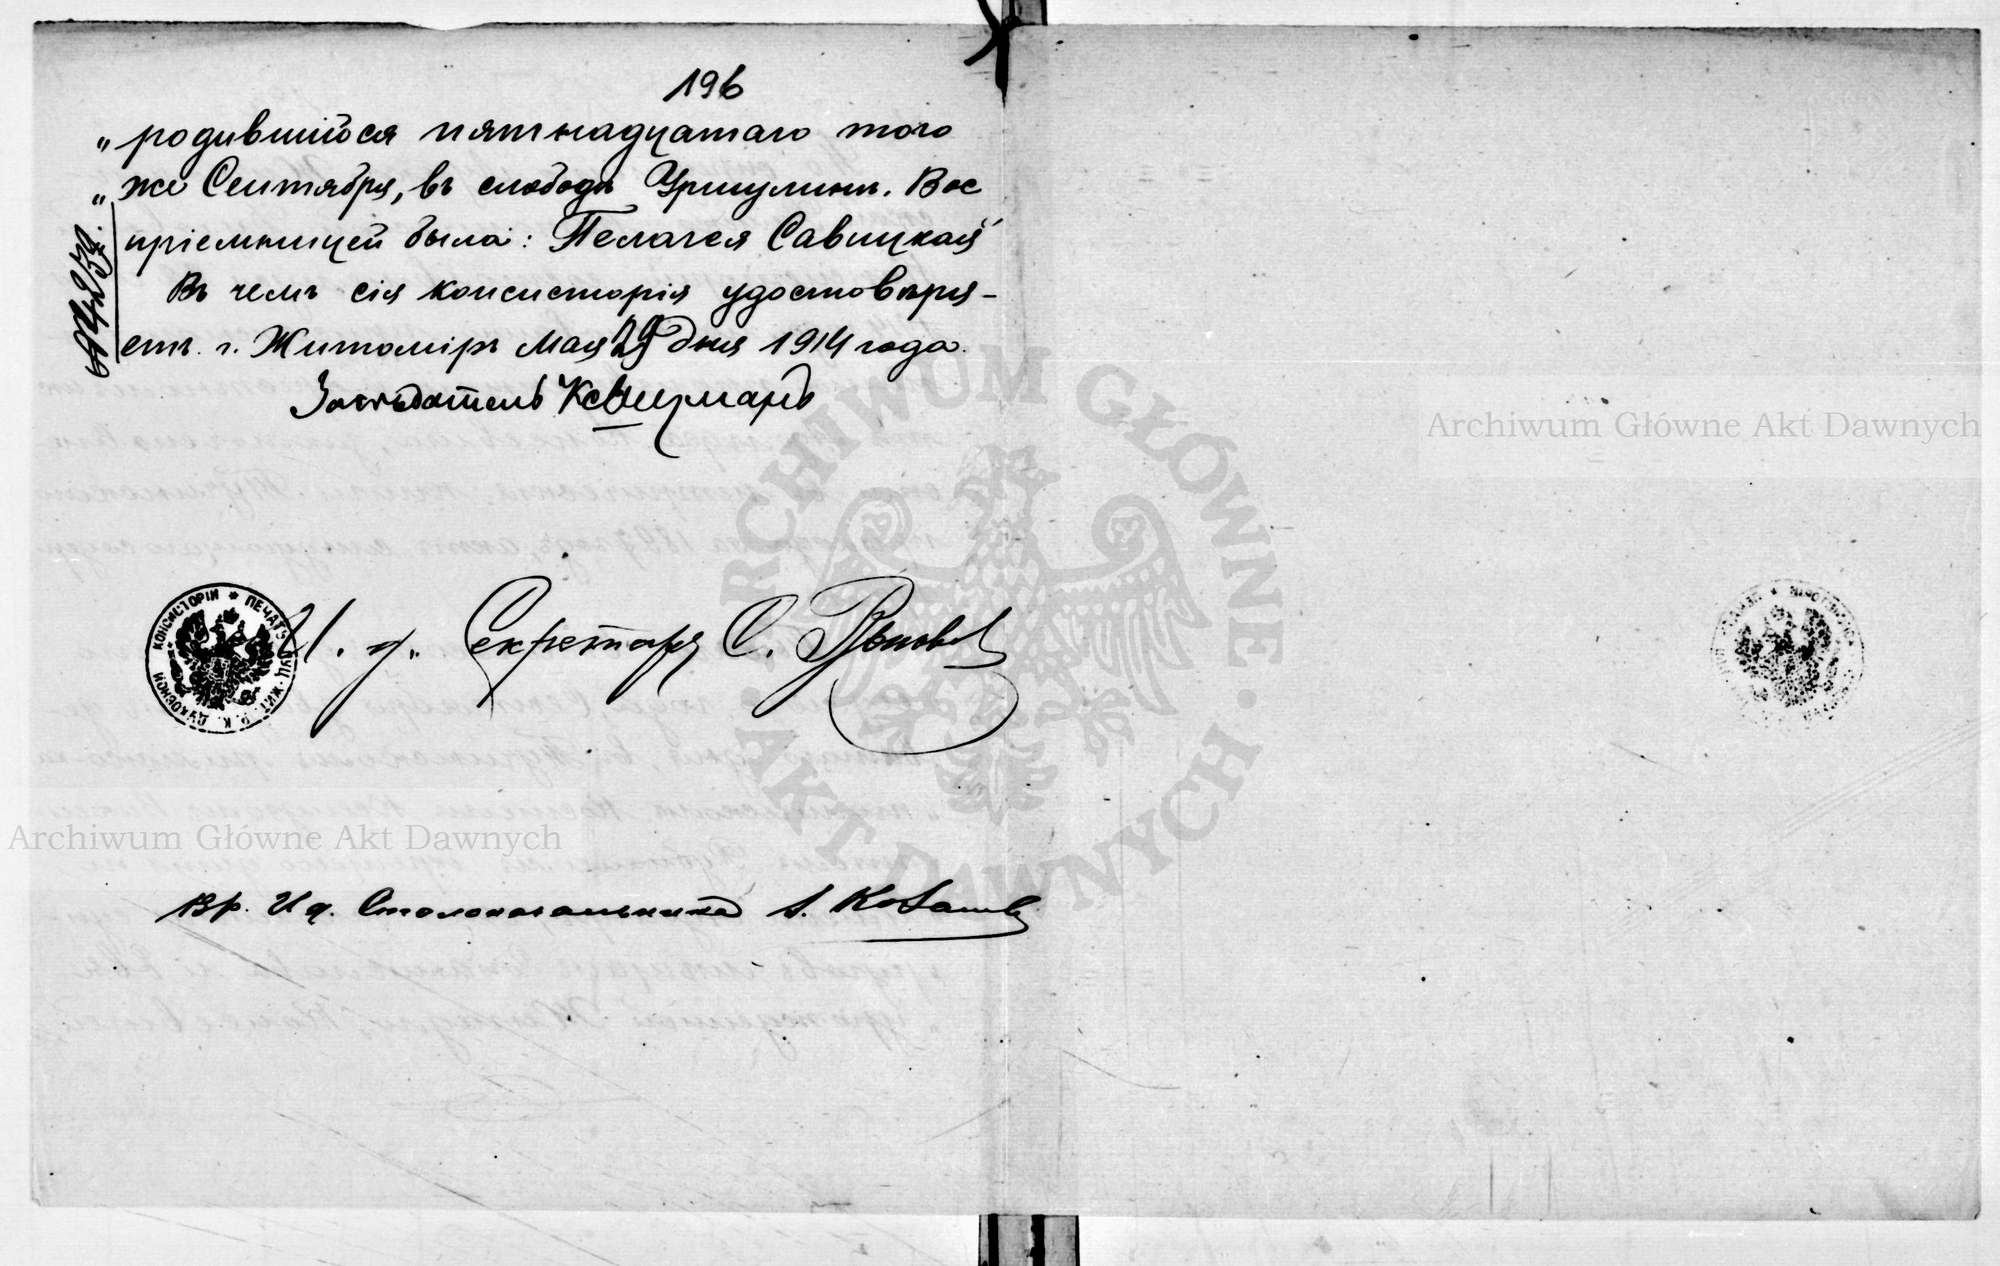 196
„ родившійся пятнадцатаго того
„ же Сентября, въ слободѣ Уршулинъ. Вос
пріемницей была: Пелагея Савицкая"
Въ чемъ сія консисторія удостовѣря-
етъ. г. Житоміръ Мая 29 дня 1914 года.
Засѣдатель
И. д. Секретаря С.
Вр. И д. Столоначальника
ПЕЧАТЬ ЛУЦ. ЖИТ. Р. К. ДУХОВНОЙ КОНСИСТОРІИ
ARCHIWUM GŁÓWNE AKT DAWNYCH
Archiwum Główne Akt Dawnych
Archiwum Główne Akt Dawnych